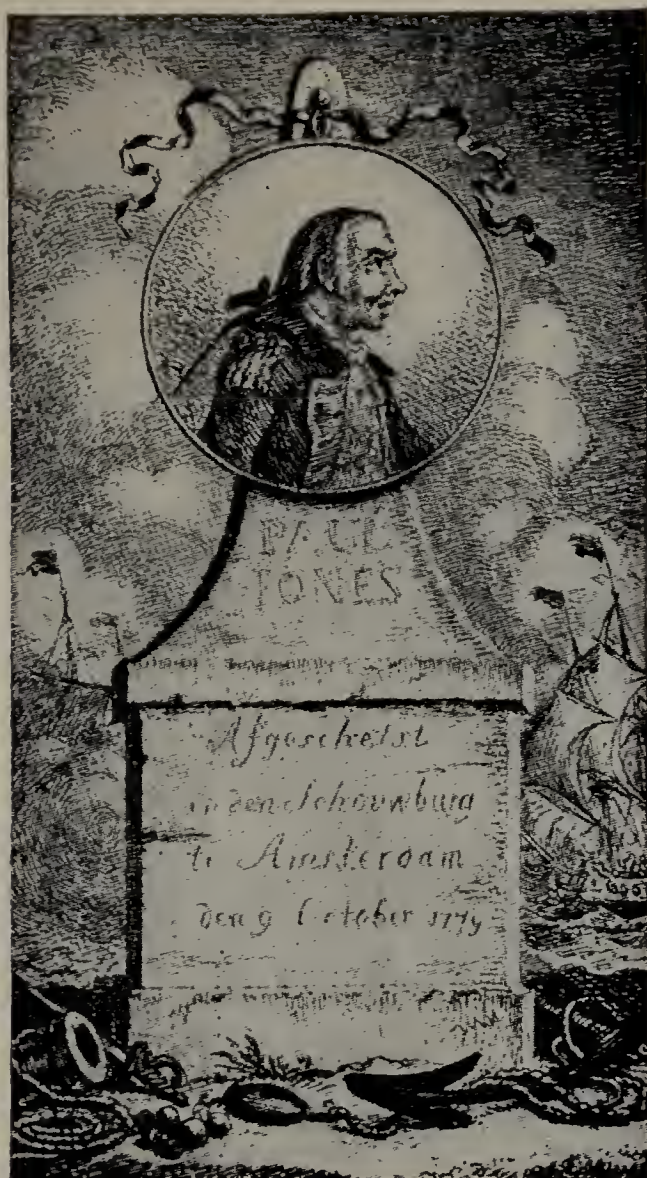 PAUL
JONES
Afgeschetst
in den Schouwburg
te Amsterdam
den 9 October 1779